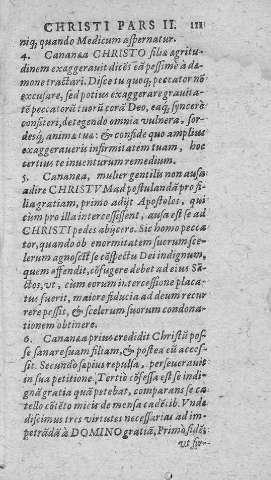 CHRISTI PARS II. 111
niq, quando Medicum aspernatur.
4. Cananæa CHRISTO filiæ ægritu-
dinem exaggerauit dicēs eā pessimè à dæ-
mone tractari. Disce tu quoq, peccator nō
excusare, sed potius exaggerare grauita-
tē peccatorū tuorū corā Deo, eaq, syncerè
confiteri, detegendo omnia vulnera, sor-
desq́, animæ tuæ: & confide quo amplius
exaggeraueris infirmitatem tuam, hoc
certius te inuenturum remedium.
5. Cananæa, mulier gentilis non ausa
adire CHRISTVM ad postulandā pro fi-
lia gratiam, primo adijt Apostolos, qui
cùm pro illa intercessissent, ausa est se ad
CHRISTI pedes abijcere. Sic homo pecca-
tor, quando ob enormitatem suorum sce-
lerum agnoscit se cōspectu Dei indignum,
quem offendit, cōfugere debet ad eius Sā-
ctos, vt, cùm eorum intercessione placa-
tus fuerit, maiore fiducia ad deum recur
rere possit, & scelerum suorum condona-
tionem obtinere.
6. Cananæa prius credidit Christū pos-
se sanare suam filiam, & postea eū acces-
sit. Secundo sæpius repulsa, perseuerauit
in sua petitione. Tertiò cōfessa est se indi-
gnā gratia quā petebat, comparans se ca-
tello cōtēto micis de mensa cadētib. Vnde
discimus tres virtutes necessarias ad im-
petrādā à DOMINO gratiā, Primo fidē,
vt fir-